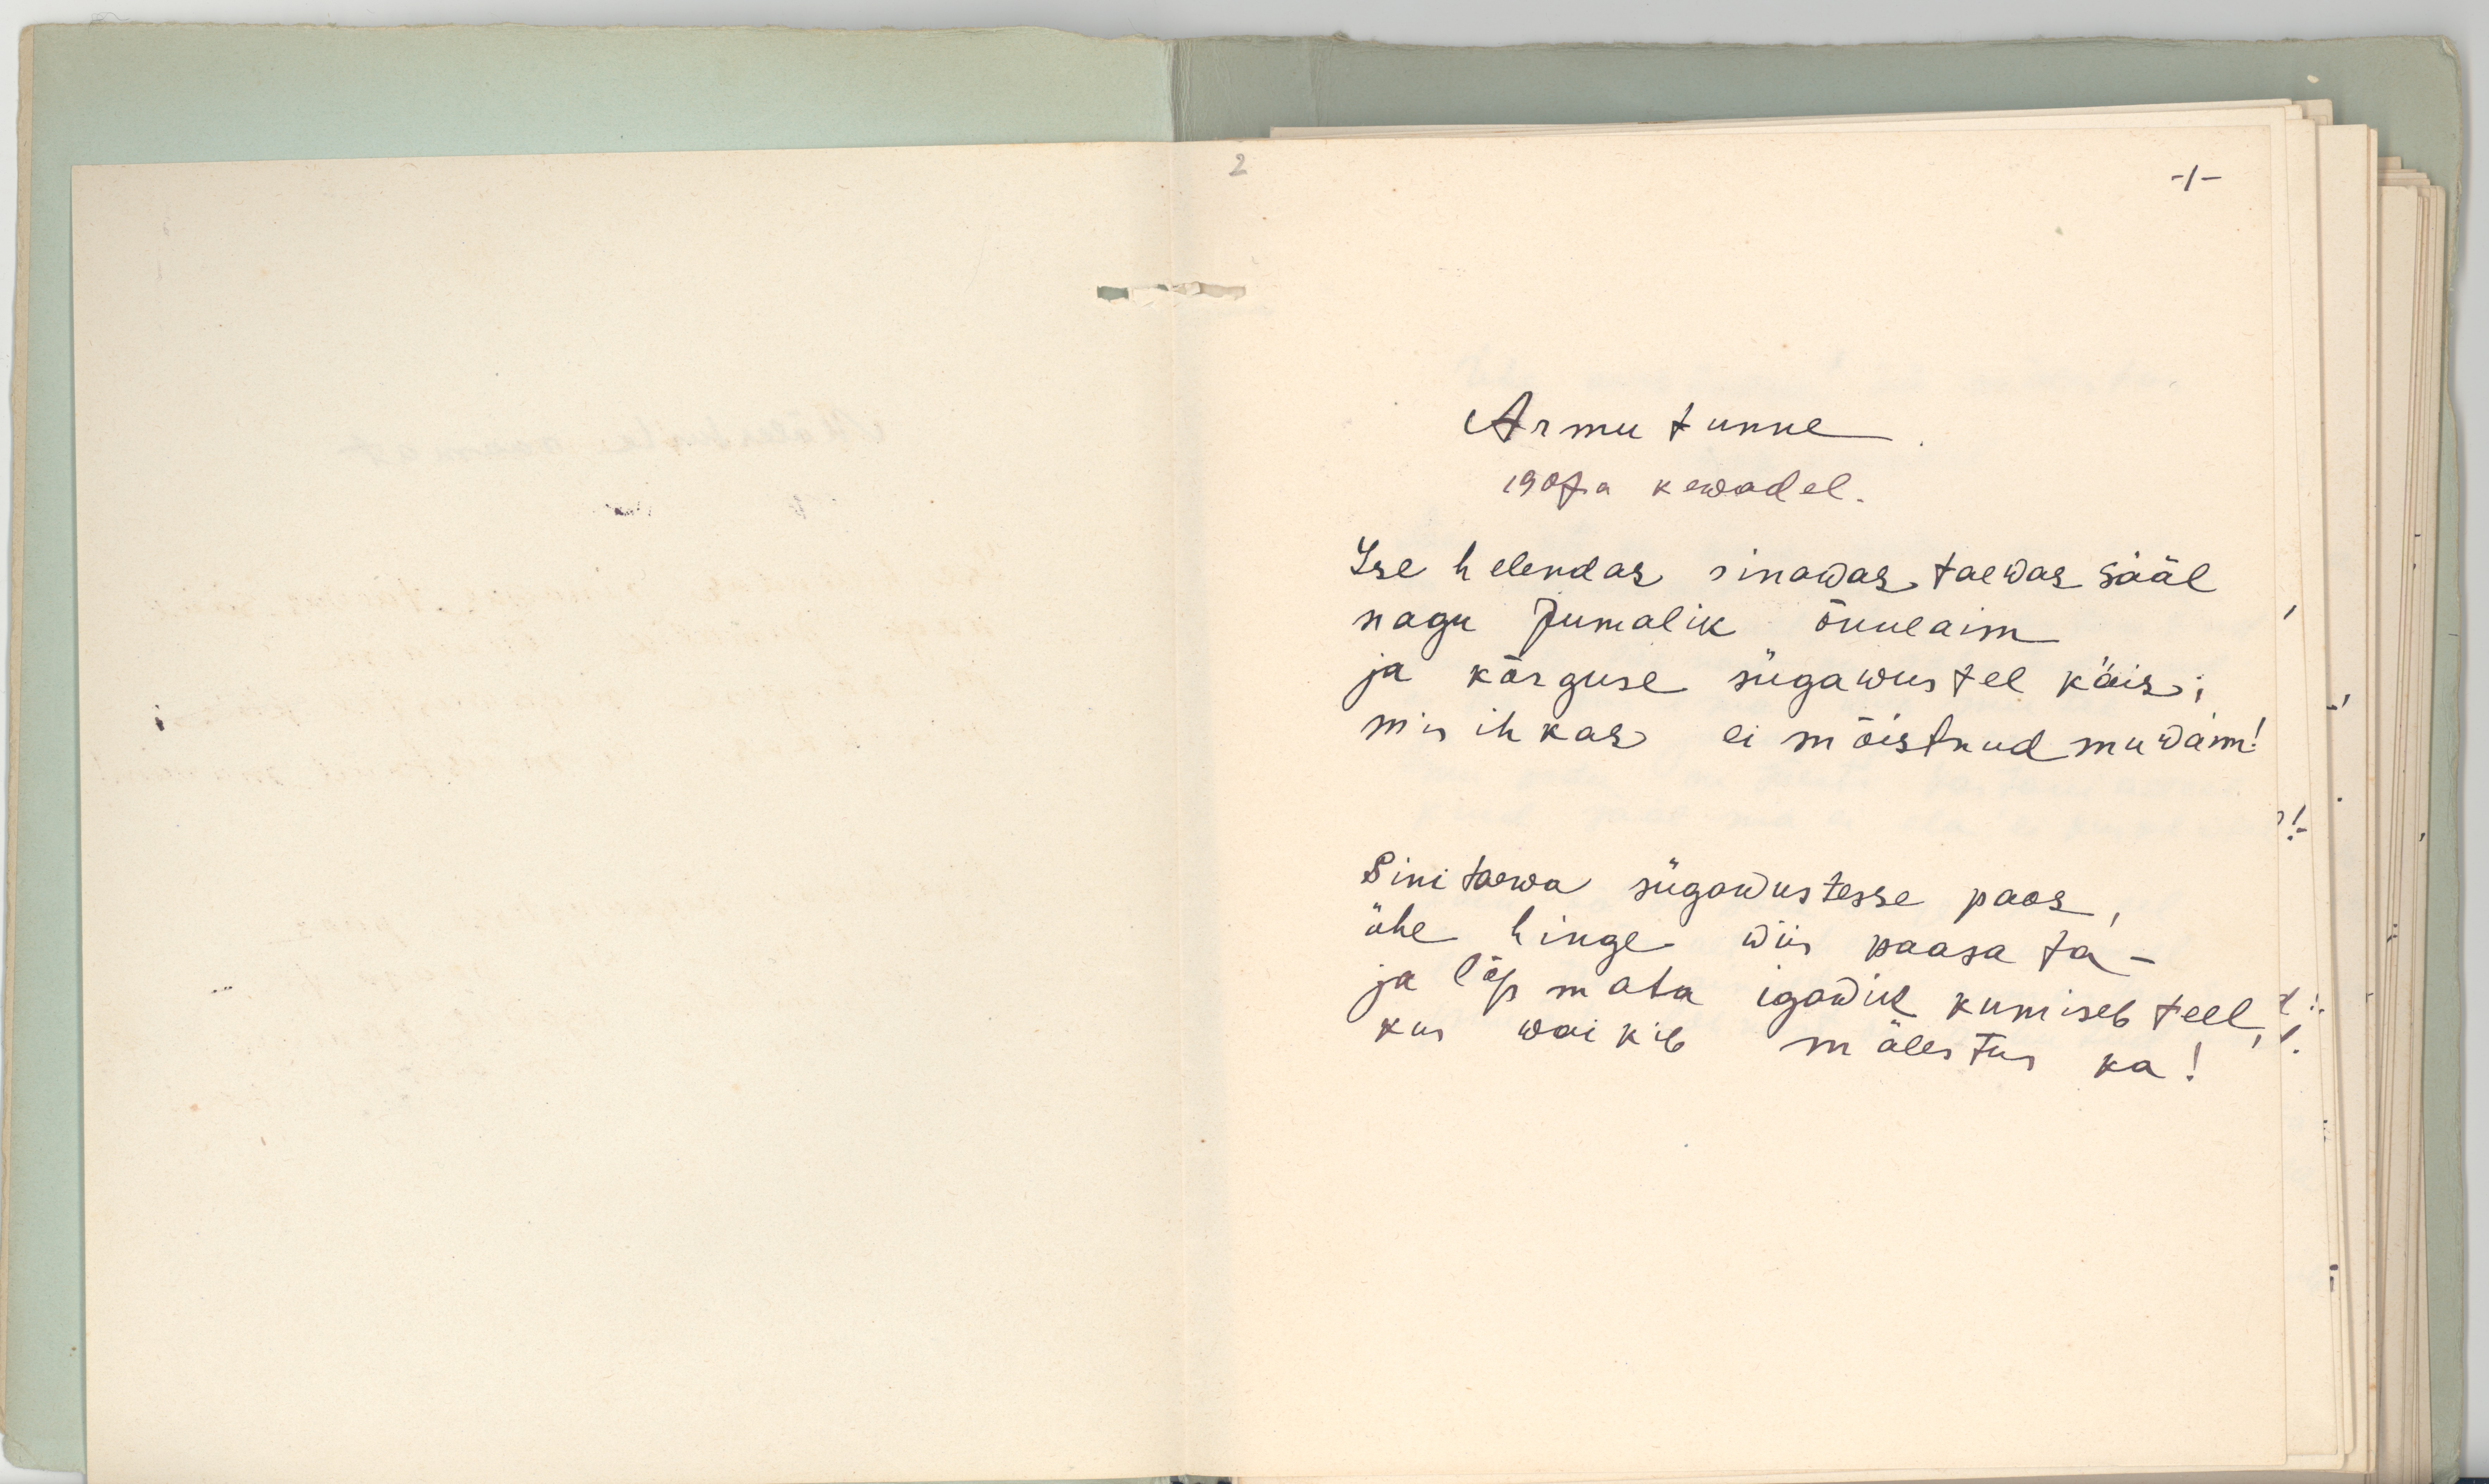 2
-1-
Armu tunne.
1907a kewadel.
Ise helendas sinawas taewas sääl
nagu Jumalik õnneaim
ja kõrguse sügawustel käis;
mis ihkas ei mõistnud mu waim!
Sinitaewa sügawustesse paos,
ühe hinge wiis paasa ta-
ja lõpmata igawik kumiseb teel,
kus waikib mälestus ka!